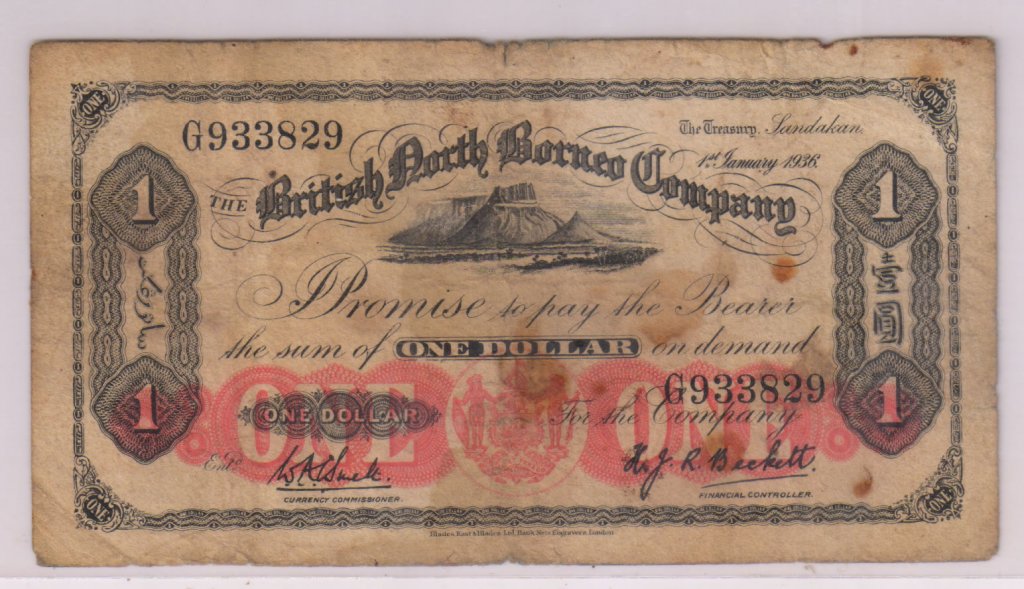 ONE
ONE
G933829
The Treasury, Sandakan.
1st January 1936
THE British North Borneo Company
1
1
I Promise to pay the Bearer
壹圓
the sum of ONE DOLLAR on demand
G933829
1
ONE
ONE DOLLAR
ONE
1
For the Company
Entd
H. J. R. Beckett.
CURRENCY COMMISSIONER.
FINANCIAL CONTROLLER.
ONE
ONE
Blades, East & Blades, Ltd, Bank Note Engravers, London